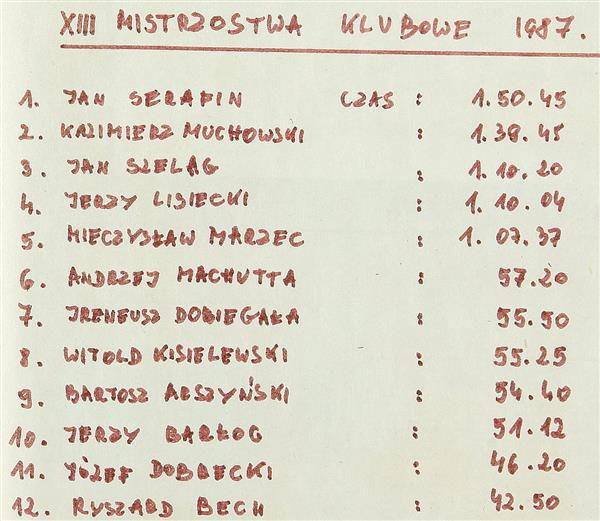 XIII MISTRZOSTWA KLUBOWE 1987.
1. JAN SERAFIN CZAS : 1.50.45
2. KAZIMIERZ MUCHOWSKI : 1.39.45
3. JAN SZELĄG : 1.10.20
4. JERZY LISIECKI : 1.10.04
5. MIECZYSŁAW MARZEC : 1.07.37
6. ANDRZEJ MACHUTTA : 57.20
7. IRENEUSZ DOBIEGAŁA : 55.50
8. WITOLD KISIELEWSKI : 55.25
9. BARTOSZ ARSZYŃSKI : 54.40
10. JERZY BARŁOG : 51.12
11. JÓZEF DOBRECKI : 46.20
12. RYSZARD BECH : 42.50